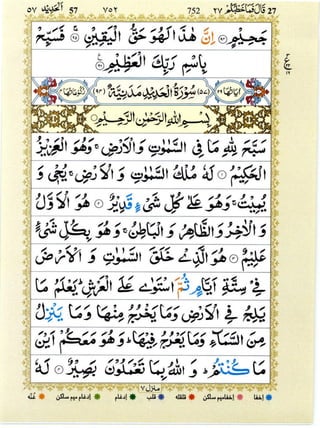 ٥٧ اَلْحَدِيْد 57 ٧٥٢ 752 ٢٧ قَالَ فَمَا خَطْبُكُمْ 27
جَحِيْمٍ ﴿٩٤﴾ اِنَّ هٰذَا لَهُوَ حَقُّ الْيَقِيْنِ ﴿٩٥﴾ فَسَبِّحْ
بِاسْمِ رَبِّكَ الْعَظِيْمِ ﴿٩٦﴾
اٰيَاتُهَا ٢٩ (٥٧) سُوْرَةُ الْحَدِيْدِ مَدَنِيَّةٌ (٩٤) رُكُوْعَاتُهَا ٤
بِسْمِ اللّٰهِ الرَّحْمٰنِ الرَّحِيْمِ
سَبَّحَ لِلّٰهِ مَا فِي السَّمٰوٰتِ وَالْاَرْضِ ۚ وَهُوَ الْعَزِيْزُ
الْحَكِيْمُ ﴿١﴾ لَهٗ مُلْكُ السَّمٰوٰتِ وَالْاَرْضِ ۚ يُحْيٖ وَ
يُمِيْتُ ۚ وَهُوَ عَلٰى كُلِّ شَيْءٍ قَدِيْرٌ ﴿٢﴾ هُوَ الْاَوَّلُ
وَالْاٰخِرُ وَالظَّاهِرُ وَالْبَاطِنُ ۚ وَهُوَ بِكُلِّ شَيْءٍ
عَلِيْمٌ ﴿٣﴾ هُوَ الَّذِيْ خَلَقَ السَّمٰوٰتِ وَالْاَرْضَ
فِيْ سِتَّةِ اَيَّامٍ ثُمَّ اسْتَوٰى عَلَى الْعَرْشِ ؕ يَعْلَمُ مَا
يَلِجُ فِي الْاَرْضِ وَمَا يَخْرُجُ مِنْهَا وَمَا يَنْزِلُ
مِنَ السَّمَآءِ وَمَا يَعْرُجُ فِيْهَا ؕ وَهُوَ مَعَكُمْ اَيْنَ
مَا كُنْتُمْ ؕ وَاللّٰهُ بِمَا تَعْمَلُوْنَ بَصِيْرٌ ﴿٤﴾ لَهٗ
منزل ٧
اخفا اخفامیم ساکن قلقله قلب ادغام ادغام میم ساکن غنّه